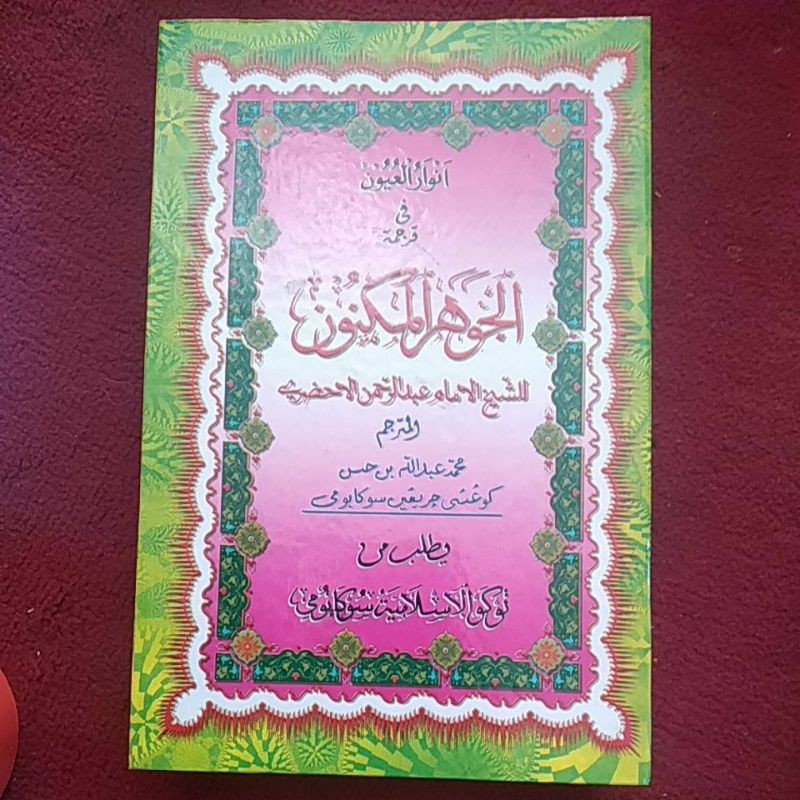 اَنْوَارُ الْعُيُوْن
فى
ترجمة
الجَوْهَرُ الْمَكْنُوْن
للشيخ الامام عبدالرّحمن الاحضري
المترجم
محمّد عبدالله بن حسن
سوكابومى
ويطلب من
توكو الاسلامية سُوكابُومى